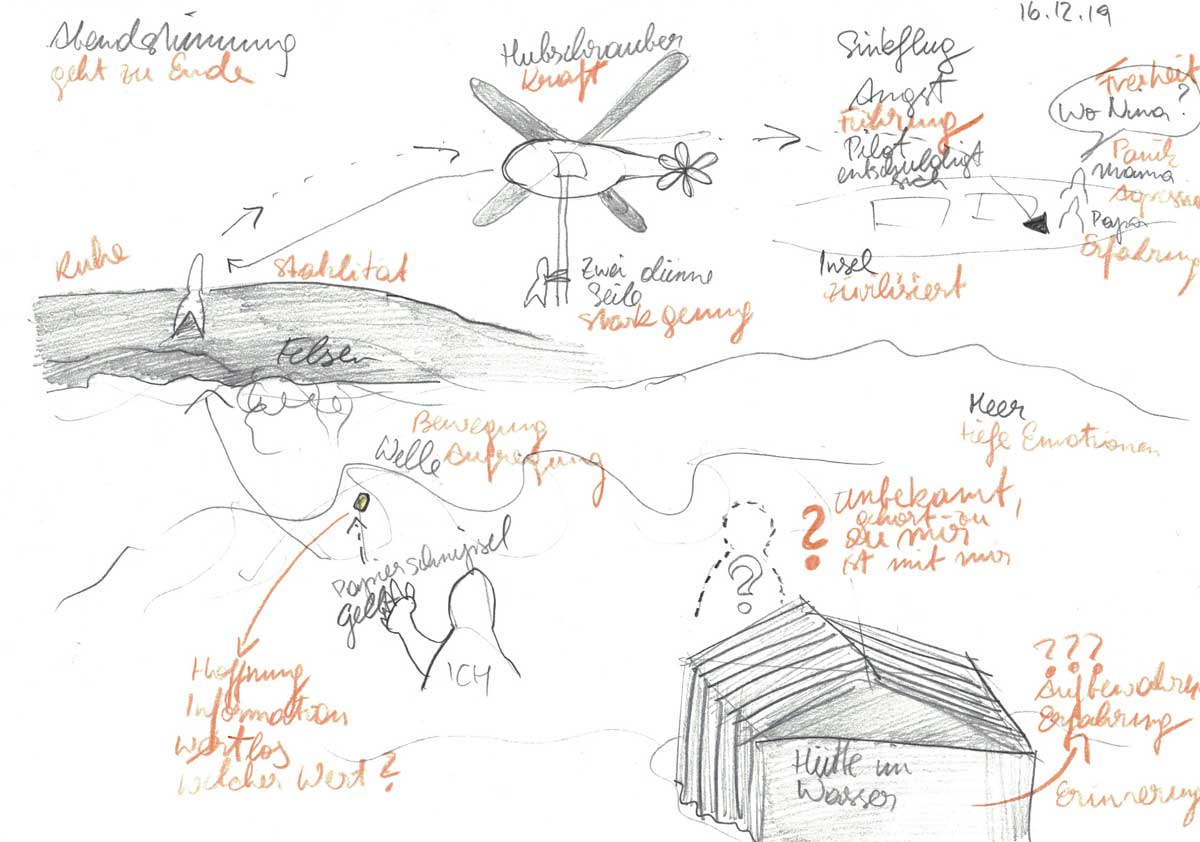 16.12.19
Abendstimmung
geht zu Ende
Hubschrauber
Kraft
Sinkflug
Angst
Führung
Pilot
entschuldigt
sich
Freiheit
Wo Nina?
Panik
Mama
Papa
Erfahrung
Insel
zivilisiert
Ruhe
Stabilität
Zwei dünne
Seile
stark genug
Felsen
Meer
tiefe Emotionen
Bewegung
Welle Aufregung
Papierschnipsel
Gelb
ICH
?
?
unbekannt,
gehört zu
zu mir
ist mit mir
Hoffnung
Information
wertlos
welcher Wert?
Hütte im
Wasser
???
Erfahrung
Erinnerung